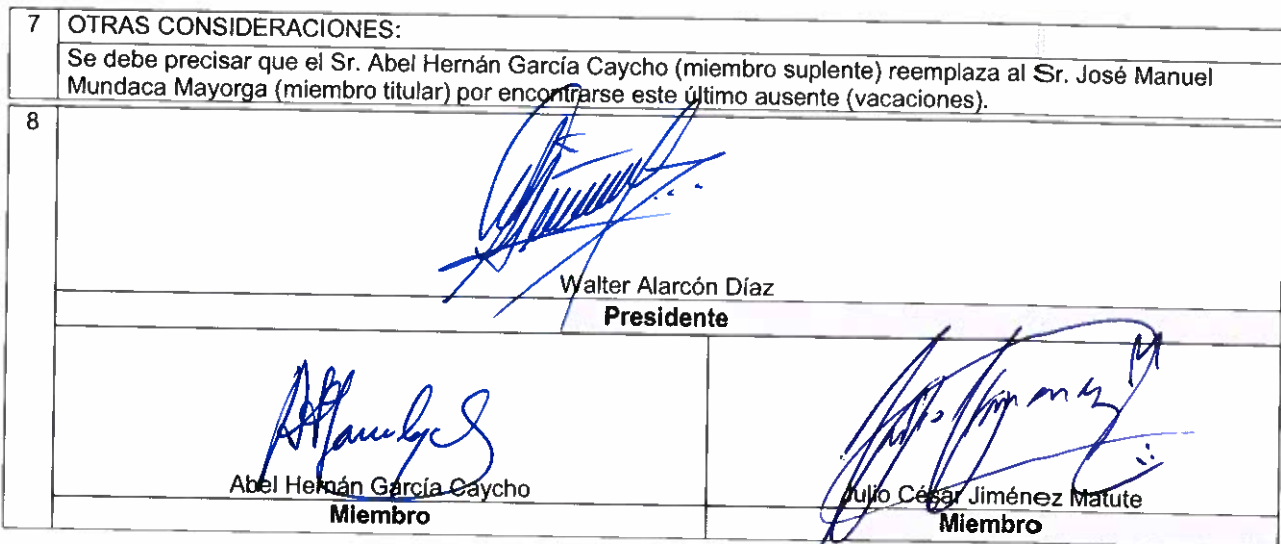 7 OTRAS CONSIDERACIONES:
Se debe precisar que el Sr. Abel Hernán García Caycho (miembro suplente) reemplaza al Sr. José Manuel
Mundaca Mayorga (miembro titular) por encontrarse este último ausente (vacaciones).
8
Walter Alarcón Díaz
Presidente
Abel Hernán García Caycho
Miembro
Julio César Jiménez Matute
Miembro